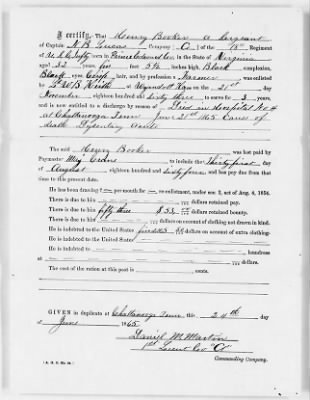 I Certify, That Henry Booker a Sergeant
of Captain N B Lucas Company "C" of the 18th Regiment
of U.S.C. Infty born in Prince Edward Co, in the State of Virginia
aged 32 years, five feet 5½ inches high, Black complexion,
Black eyes, hair, and by profession a Farmer was enlisted
by at Wyandott Kan on the 21st day
November eighteen hundred and Sixty three to serve 3 years,
and is now entitled to a discharge by reason of Died in Hospital No 4
at Chattanooga Tenn June 21st 1865 Cause of
death Dysentery Acute
The said Henry Booker was last paid by
Paymaster Maj to include the Thirty first day
of August eighteen hundred and Sixty four and has pay due from that
time to the present date.
He has been drawing ? — per month for — re-enlistment, under sec 2, act of Aug. 4, 1854.
There is due to him dollars retained pay.
There is due to him fifty three $53 dollars retained bounty.
There is due to him dollars on account of clothing not drawn in kind.
He is indebted to the United States dollars on account of extra clothing.
He is indebted to the United States
at
He is indebted to hundreds
at dollars.
The cost of the ration at this post is cents.
GIVEN in duplicate at Chattanooga Tenn this 24th day
of June 1865
Daniel M. Martin
1st Lieut Co "C"
Commanding Company.